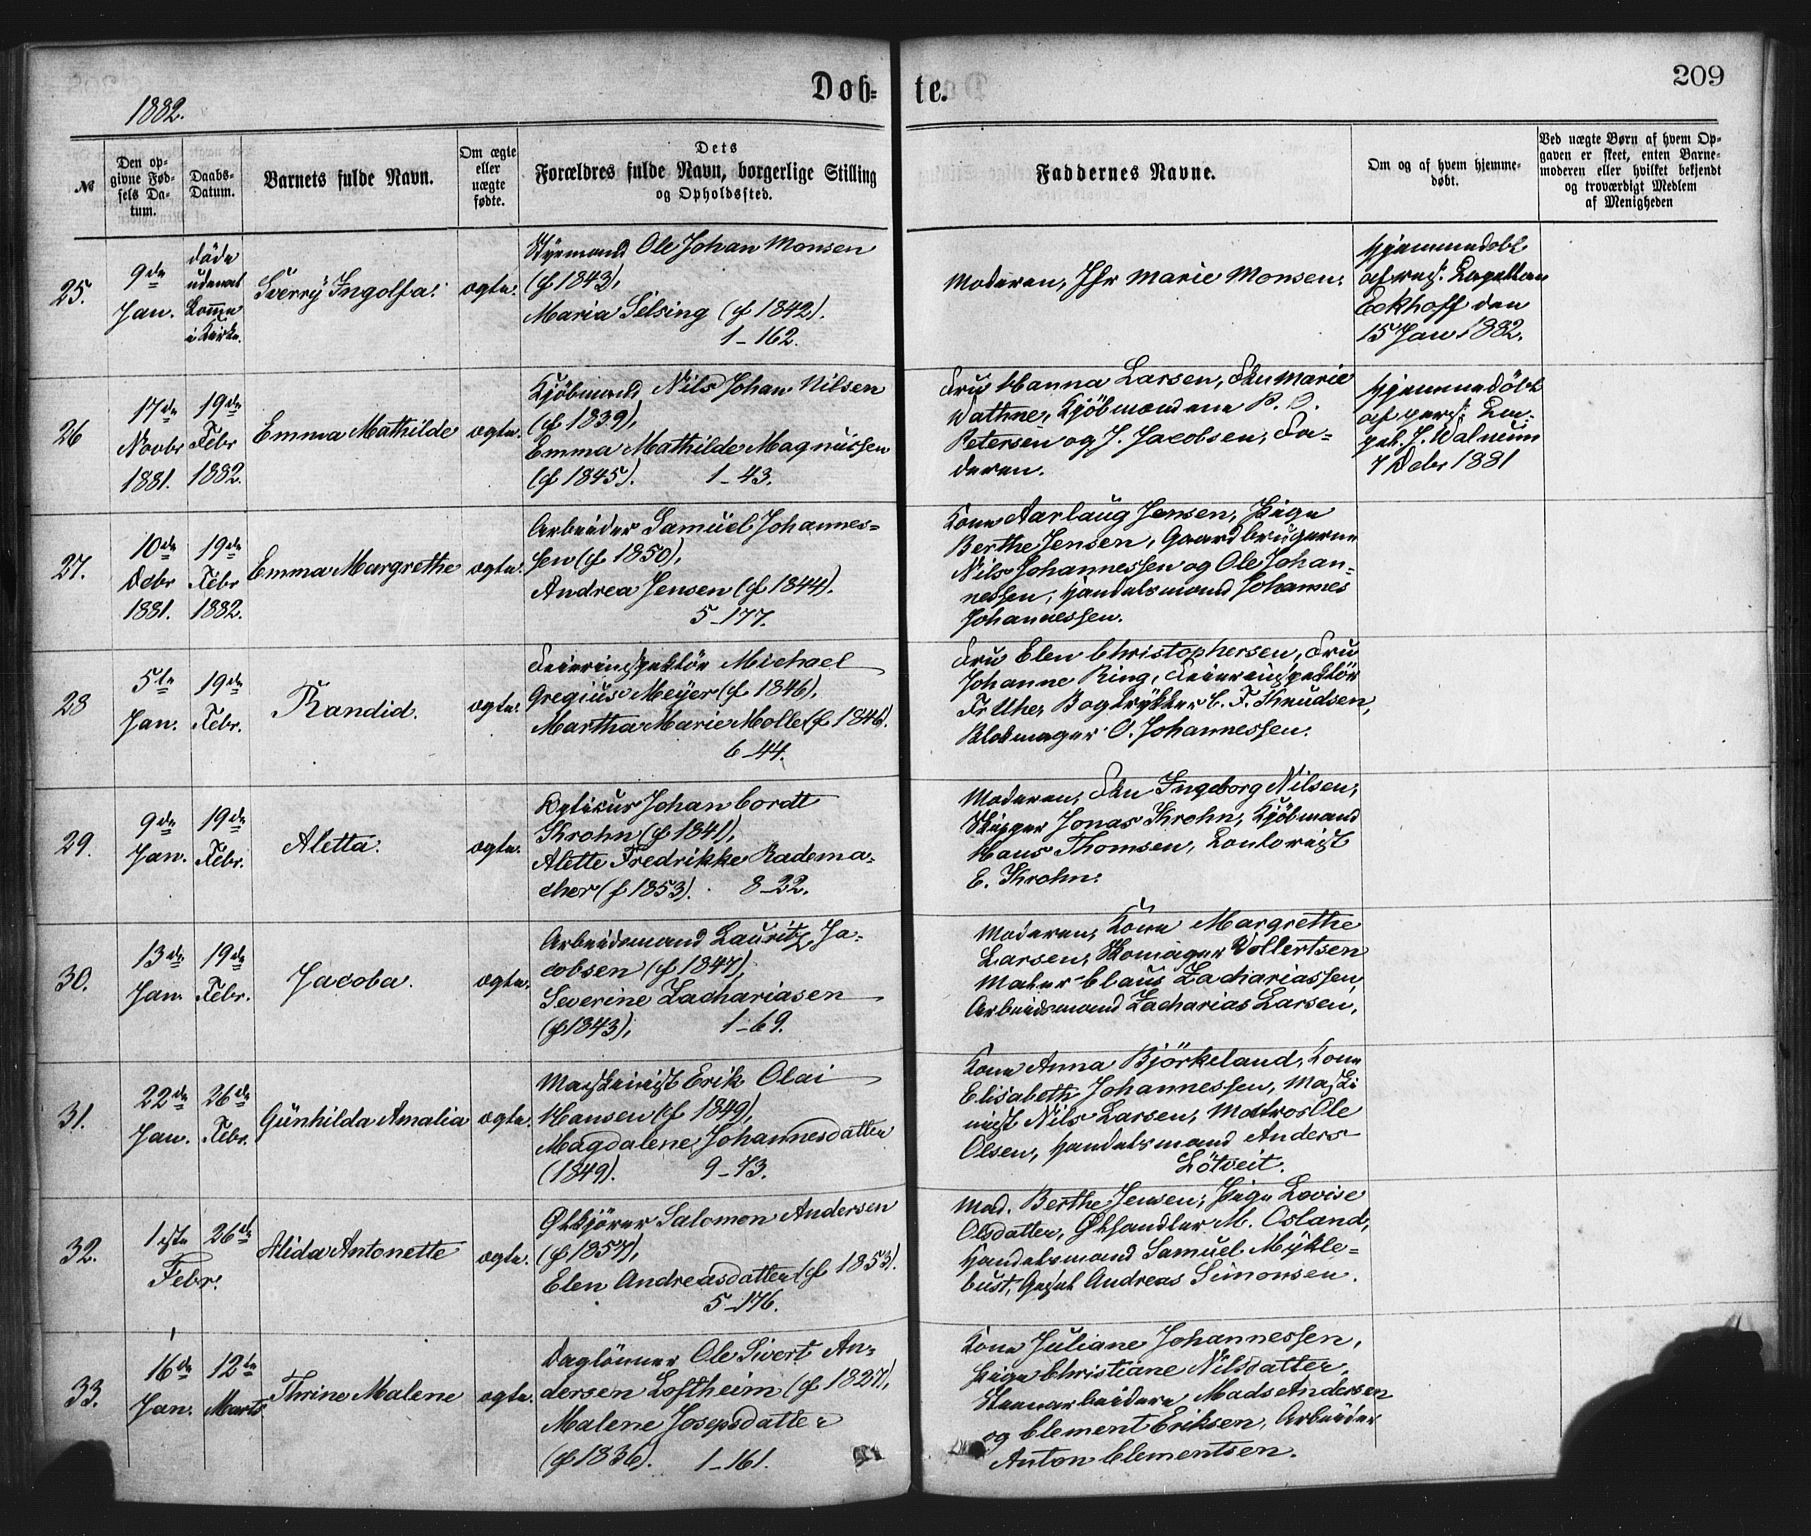 Døb-
te.
209
1882.
№
Den op-
givne Fød-
sels Da-
tum.
Daabs-
Datum.
Barnets fulde Navn.
Om ægte
eller
uægte
fødte.
Dets
Forældres fulde Navn, borgerlige Stilling
og Opholdssted.
Faddernes Navne.
Om og af hvem hjemme-
døbt.
Ved uægte Børn af hvem Op-
gaven er skeet, enten Barne-
moderen eller hvilket bekjendt
og troværdigt Medlem
af Menigheden
25.
9de
Jan.
døde
udenat
komme
i Kirke.
Sverry Ingolfa.
ægte.
Styrmand Ole Johan Monsen
(f 1843),
Maria Selsing (f 1842).
1-162.
Moderen, Jfr Marie Monsen.
Hjemmedøbt
af res. Kapellan
Eckhoff den
15 Jan 1882.
26
17de
Novbr
1881.
19de
Febr
1882.
Emma Mathilde
ægte.
Kjöbmand Nils Johan Nilsen
(f 1839),
Emma Mathilde Magnussen
(f 1845). 1-43.
Fru Hanna Larsen, Frk Marie
Wathne, Kjöbmændene P. O.
Petersen og J. Jacobsen, Fa-
deren.
Hjemmedöbt
af pers. Ka-
pel. J. Walnum
7 Debr 1881
27.
10de
Debr
1881.
19de
Febr
1882.
Emma Margrethe
ægte.
Arbeider Samuel Johannes-
sen (f 1850),
Andrea Jensen (f 1844).
5-177.
Kone Aarlaug Jensen, Pige
Berthe Jensen, Gaardbrugerne
Nils Johannessen og Ole Johan-
nessen, Handelsmand Johannes
Johannessen.
28
5te
Jan.
19de
Febr.
Randid.
ægte.
Feierinspektör Michael
Gregius Meyer (f 1846),
Martha Marie Molle (f 1846).
6-44.
Fru Elen Christophersen, Fru
Johanne Ring, Feierinspektör
Frithe, Bogtrykker C. F. Knudsen,
Blokmager O. Johannessen.
29.
9de
Jan.
19de
Febr.
Aletta.
ægte.
Opticus Johan Cordt
Krohn (f 1841),
Alette Fredrikke Radema-
cher (f 1853). 8-22.
Moderen, Frk Ingeborg Nilsen,
Skipper Jonas Krohn, Kjöbmand
Hans Thomsen, Kontorist
E. Krohn.
30.
13de
Jan.
19de
Febr.
Jacoba.
ægte.
Arbeidsmand Lauritz Ja-
cobsen (f 1847),
Severine Zachariasen
(f 1843), 1-69.
Moderen, Kone Margrethe
Larsen, Skomager Vollertsen
Maler Claus Zachariassen,
Arbeidsmand Zacharias Larsen,
31.
22de
Jan.
26de
Febr.
Gunhilda Amalia
ægte.
Maskinist Erik Olai
Hansen (f 1849),
Magdalene Johannesdatter
(1849). 9-73.
Kone Anna Björkeland, Kone
Elisabeth Johannessen, Maski
nist Nils Larsen, Matros Ole
Olsen, Handelsmand Anders
Lötveit.
32.
1ste
26de
Febr.
Alida Antonette
ægte.
Ölkjörer Salomon Andersen
(f 1857),
Elen Andreasdatter (f 1853).
5-176.
Mad. Berthe Jensen, Pige Lovise
Olsdatter, Ölhandler M. Osland,
Handelsmand Samuel Mykle-
bust, Gesel Andreas Simonsen.
33.
16de
Jan.
12te
Marts
Thrine Malene
ægte.
Daglönner Ole Sivert An-
dersen Loftheim (f 1827),
Malene Josepsdatter
(f 1836). 1-161.
Kone Juliane Johannessen,
Pige Christiane Nilsdatter,
Stenarbeidere Mads Andersen
og Clement Eriksen, Arbeider
Anton Clementsen.